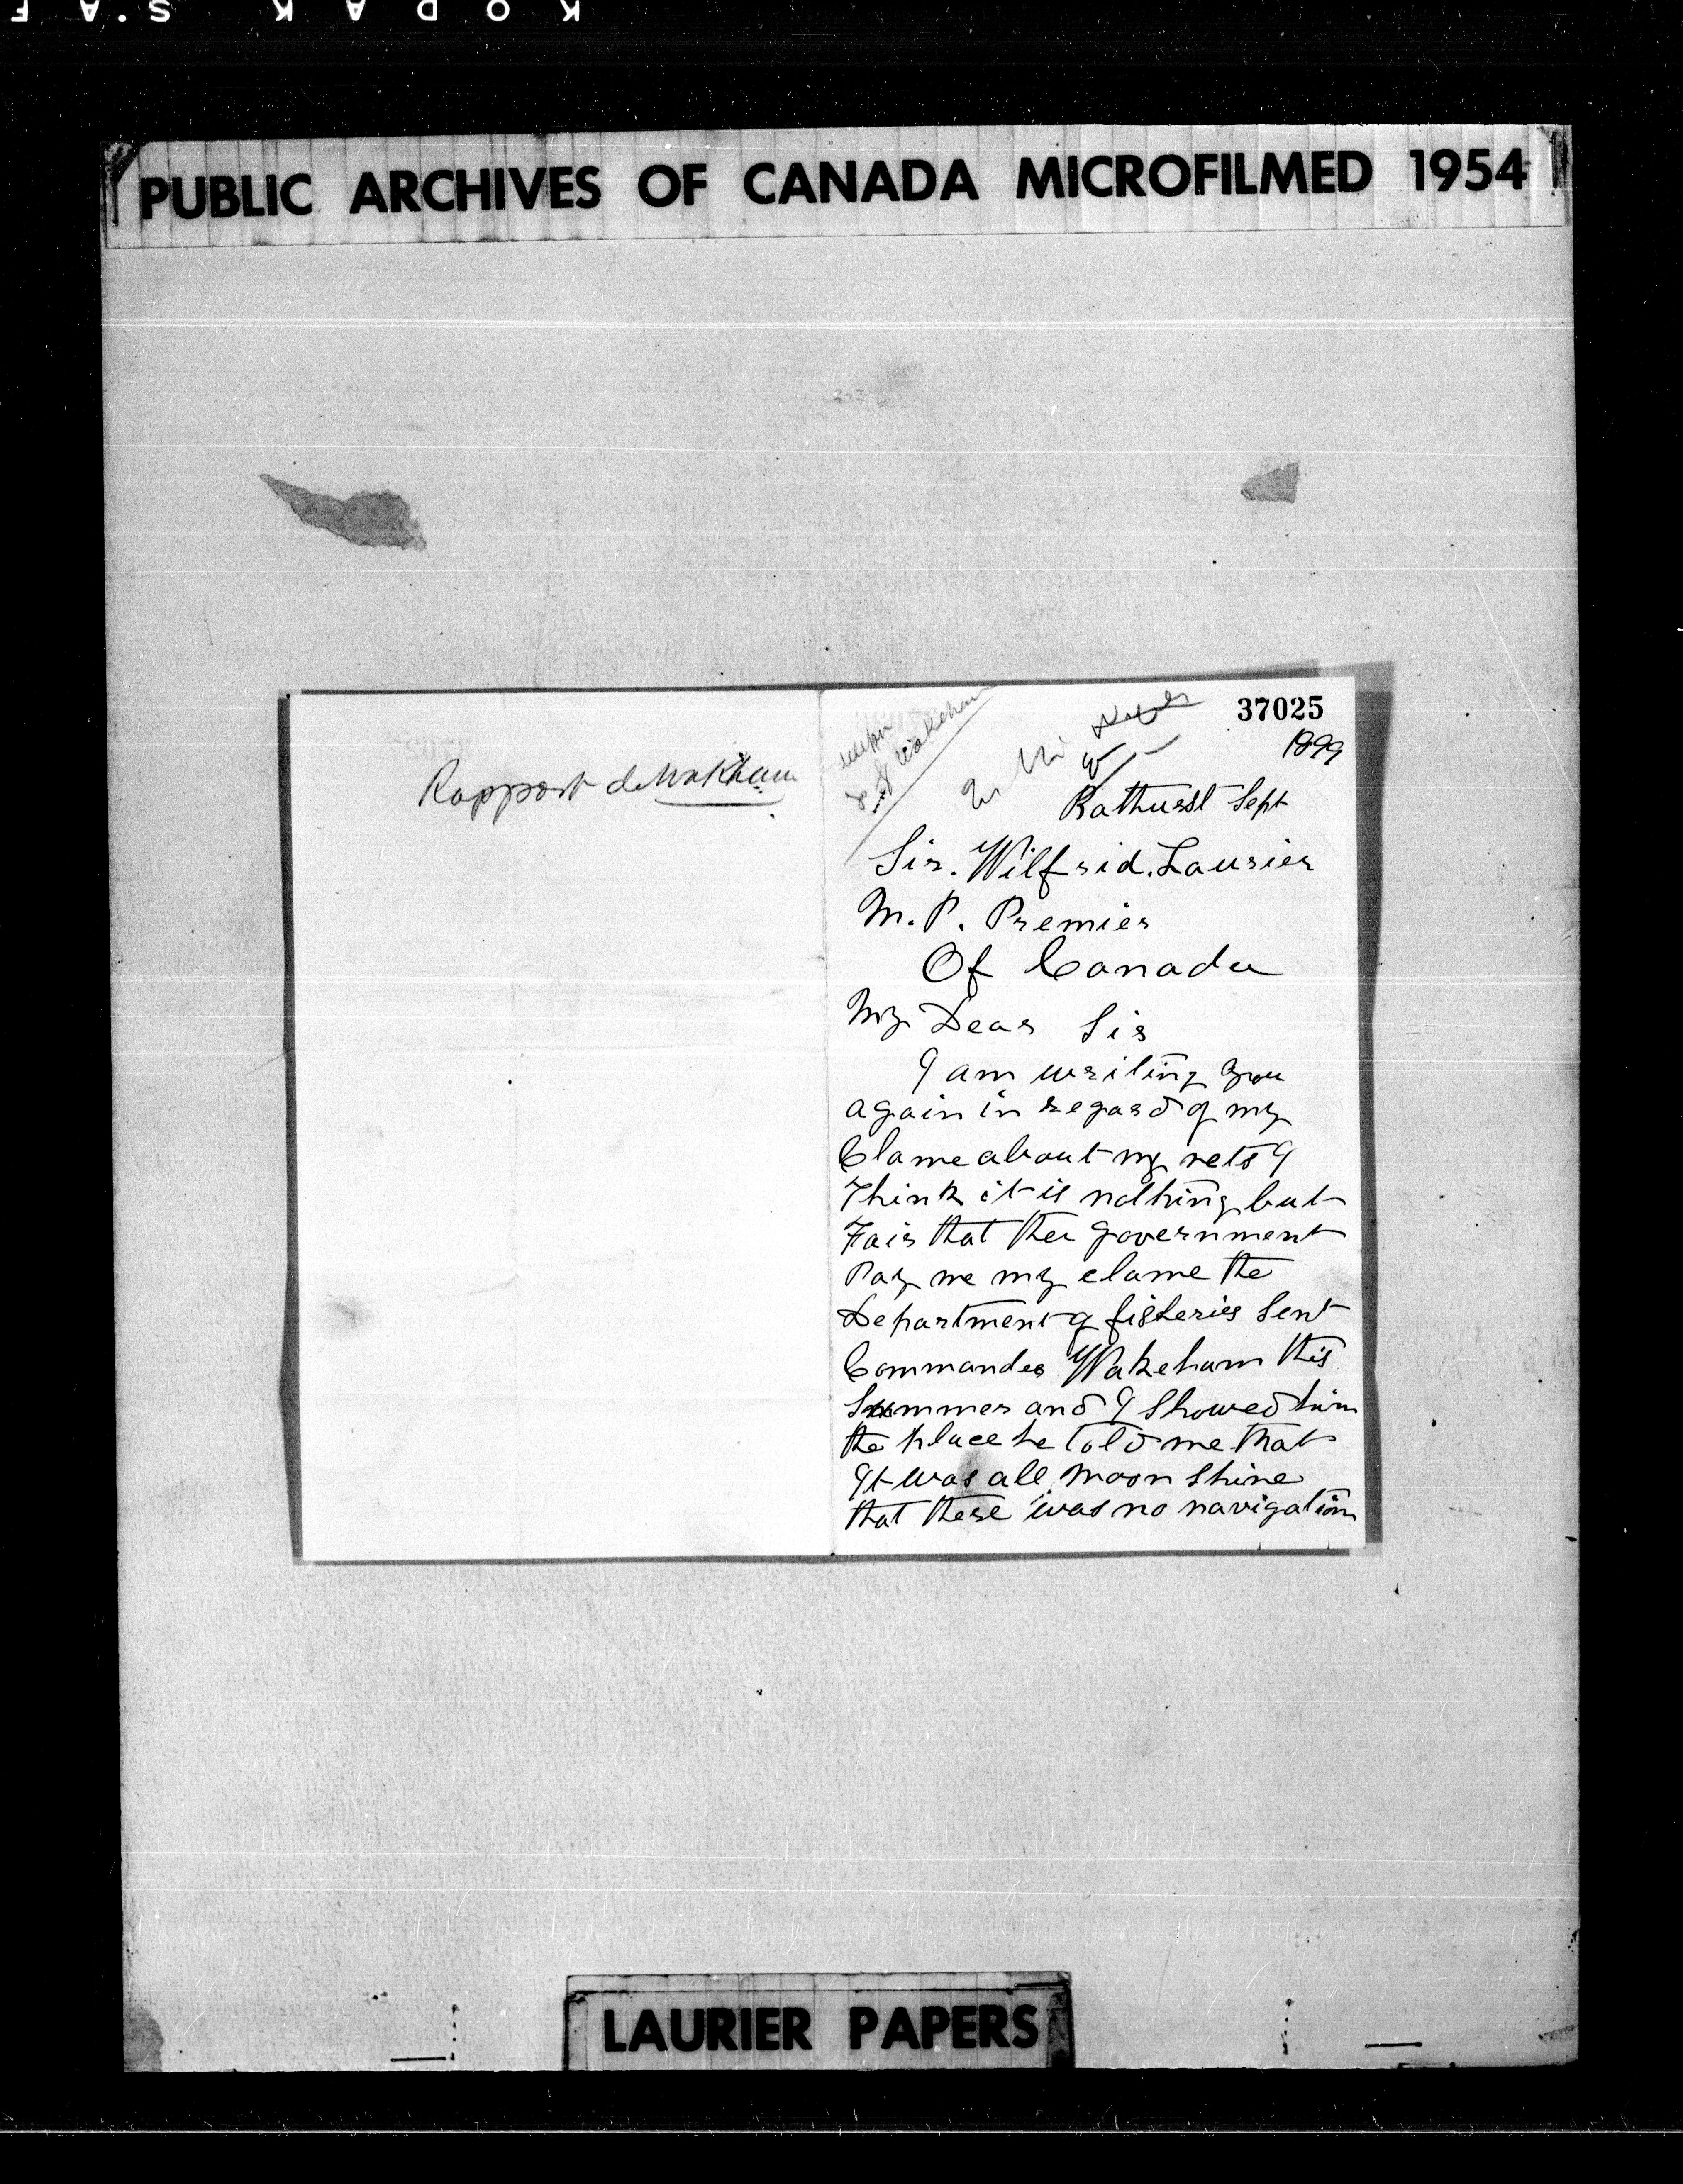 KODAK S.AF
PUBLIC ARCHIVES OF CANADA MICROFILMED 1954
Rapport de Wakeham
Wakeham
37025
1899
Bathurst Sept
Sir. Wilfrid. Laurier
M. P. Premier
Of Canada
My Dear Sir
I am writing you
again in regard of my
Clame about my nets I
Think it is nothing but
Fair that the government
Pay me my clame the
Department of fisheries Sent
Commander Wakeham this
Summer and I Showed him
the place he told me that
It was all moon Shine
that there was no navigation
LAURIER PAPERS